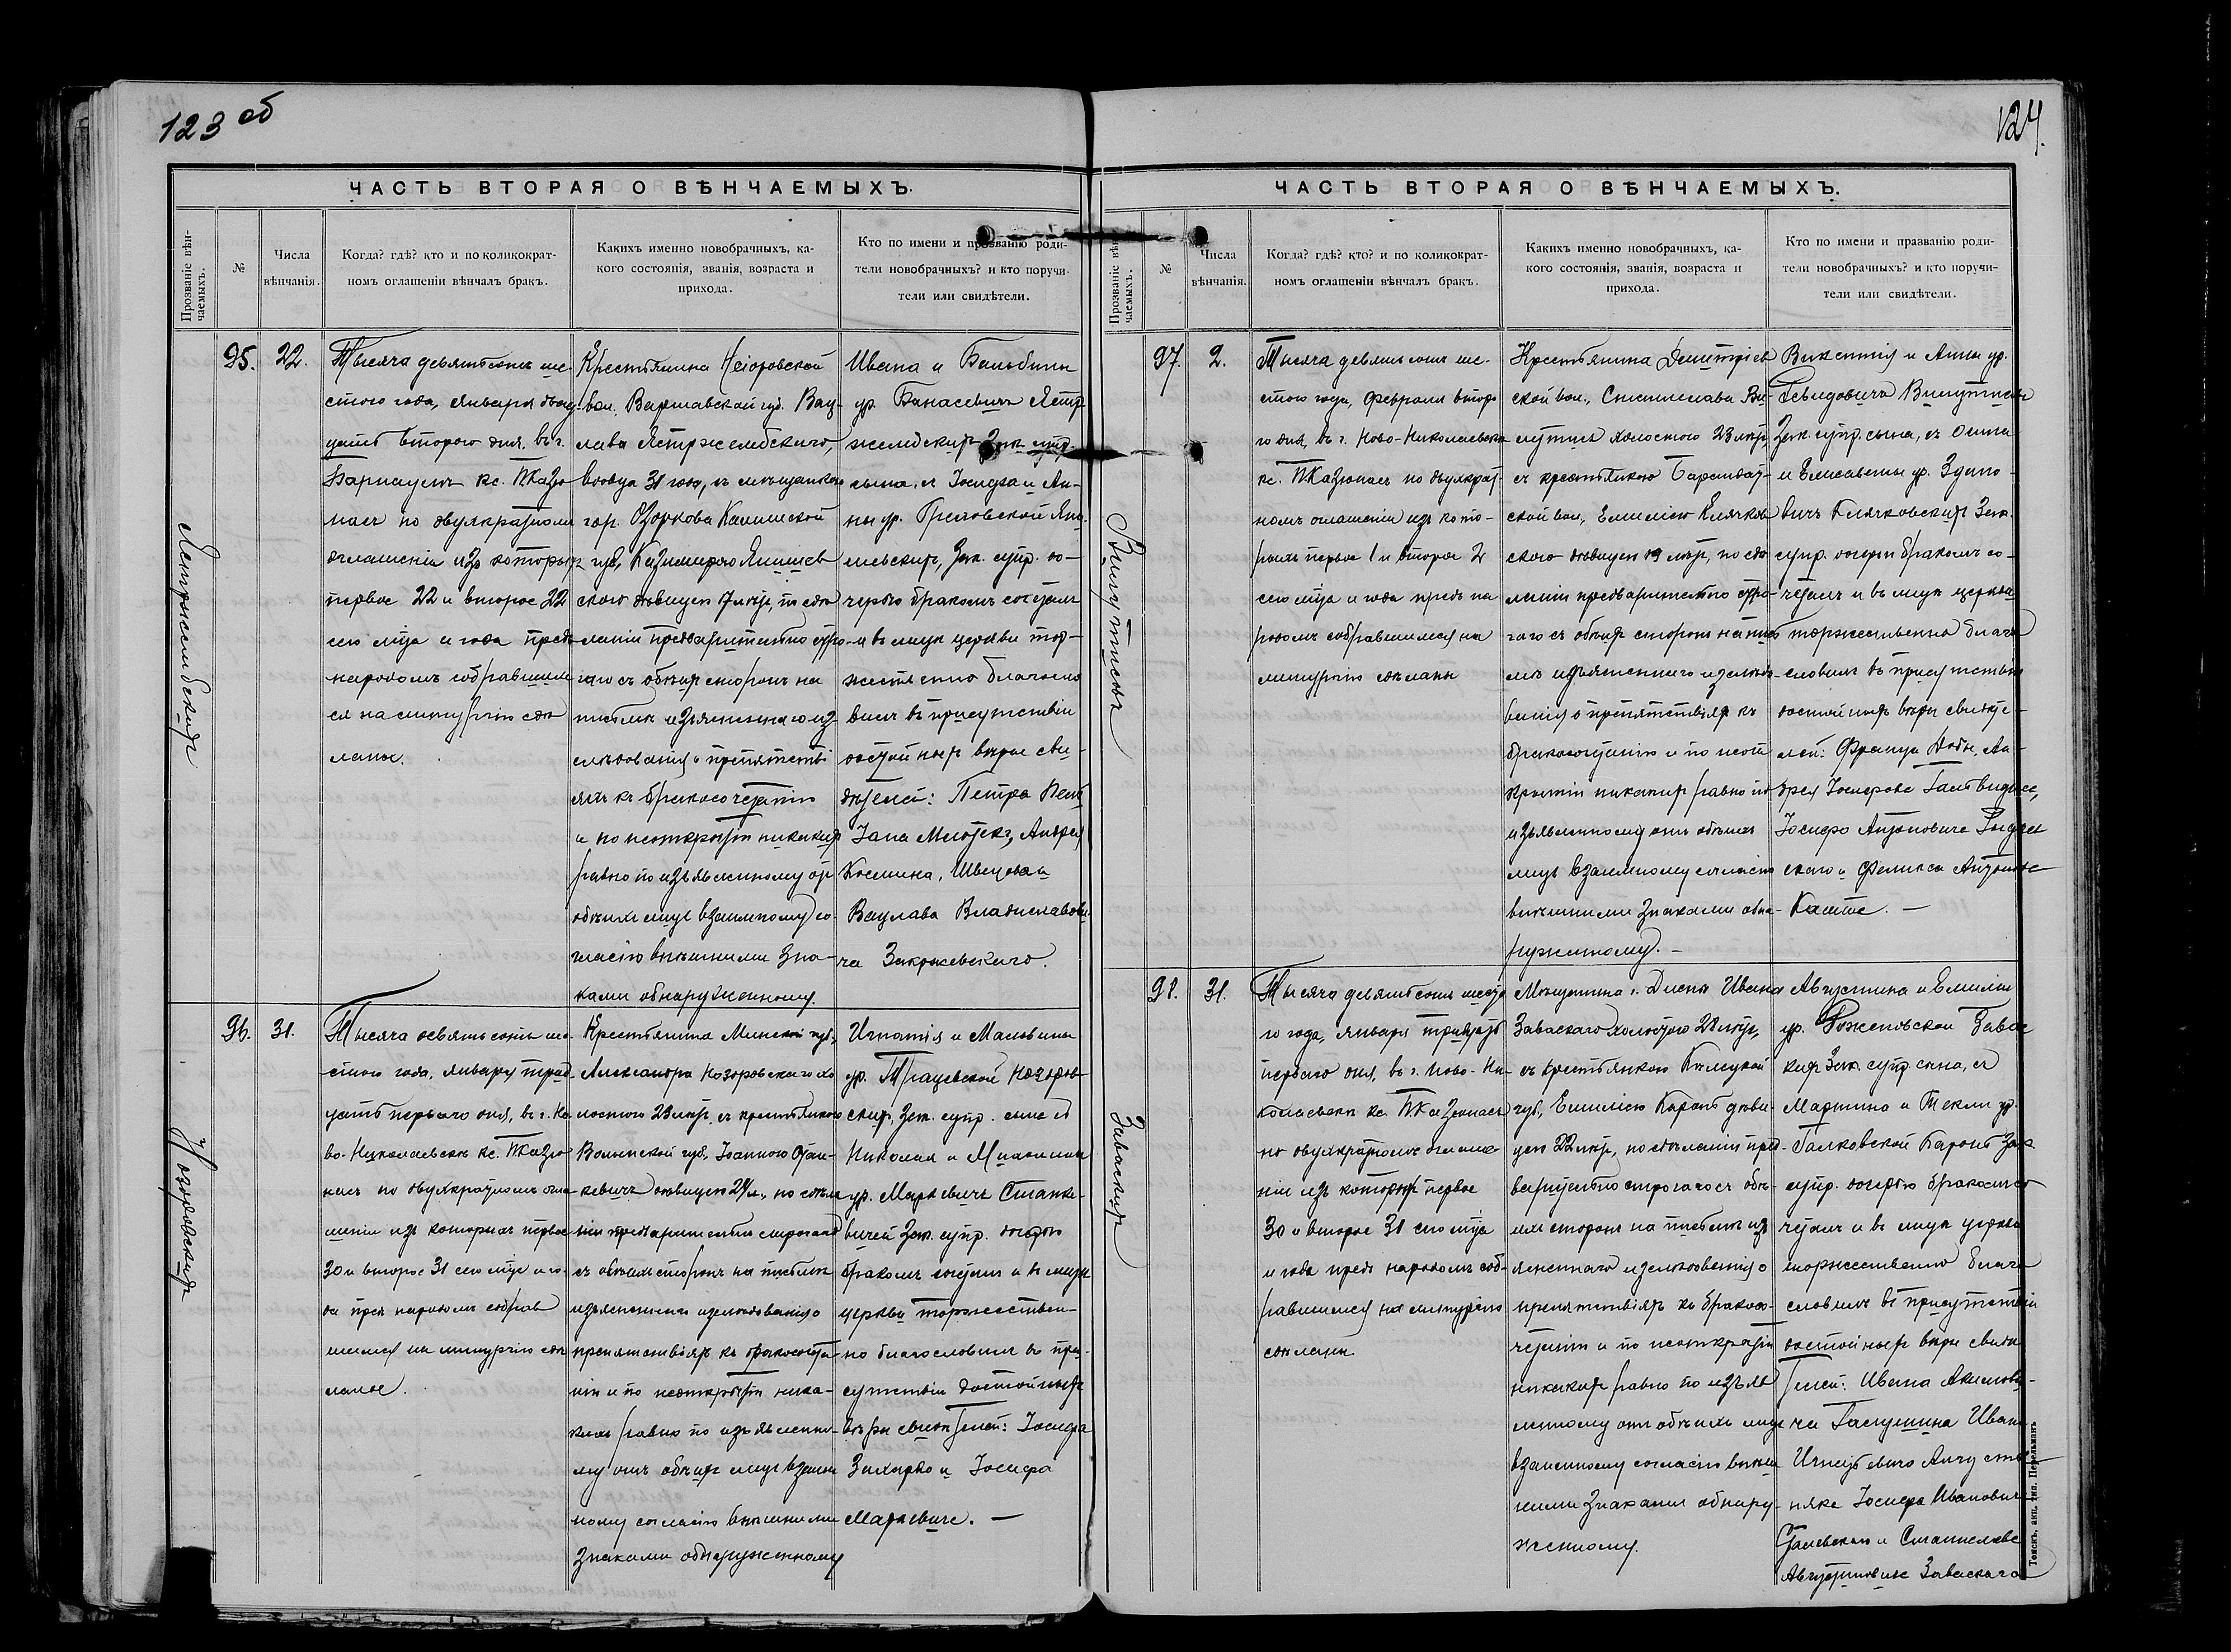 123 об
ЧАСТЬ ВТОРАЯ О ВѢНЧАЕМЫХЪ.
Прозваніе вѣн-
чаемыхъ.
№
Числа
вѣнчанія.
Когда? гдѣ? кто и по коликократ-
номъ оглашеніи вѣнчалъ бракъ.
Какихъ именно новобрачныхъ, ка-
кого состоянія, званія, возраста и
прихода.
Кто по имени и прозванію роди-
тели новобрачныхъ? и кто поручи-
тели или свидѣтели.
95.
22.
Тысяча девятьсотъ ше-
стого года, января двад-
цать второго дня въ г.
Барнаулѣ кс.
насъ по двукратномъ
оглашеніи изъ которыхъ
первое 22 и второе 22
сего мѣца и года предъ
народомъ собравшим
ся на литургію сдѣ
ланы.
Крестьянина
вол. Варшавской губ. Вац-
лава Ястржембскаго,
вдовца 31 года, съ мѣщанкою
гор. Озоркова Калишской
губ. Казимирою
дѣвицею 17 лѣтъ, по сдѣ
ланіи предварительно стро-
гаго съ обѣихъ сторонъ на
письмѣ изъясненнаго из
слѣдованія о препятстві
яхъ къ бракосочетанію
и по неоткрытіи никакихъ
равно по изъявленному отъ
обѣихъ лицъ взаимному со-
гласію внѣшними зна-
ками обнаруженному.
Ивана и Бальбины
ур. Банасевичъ Ястр
жембскихъ Зак. супр.
сына, съ Іосифа и Ан-
ны ур.
Зак. супр. до-
черью бракомъ сочеталъ
и въ лицѣ церкви тор-
жественно благосло
вилъ въ присутствіи
достойныхъ вѣры сви-
дѣтелей: Петра
Іана Андрея
Космина, Швецова и
Вацлава Владиславови
ча Закржевскаго.
Ястржембскихъ
96.
31.
Тысяча девятьсотъ ше-
стого года, января трид-
цать перваго дня, въ г. Но
во-Николаевскѣ кс.
насъ по двукратномъ огла
шеніи изъ которыхъ первое
30 и второе 31 сего мѣца и го-
да предъ народомъ собрав
шимся на литургію сдѣ
ланы.
Крестьянина Минской губ.,
Александра Нозоровскаго хо
лостого 23 лѣтъ, съ крестьянкою
Волынской губ., Іоанною Стан-
кевичъ дѣвицею 24 л., по сдѣла
ніи предварительно строгаго
съ обѣихъ сторонъ на письмѣ
изъясненнаго изслѣдованія о
препятствіяхъ къ бракосочета
нію и по неоткрытіи ника-
кихъ равно по изъявленно-
му отъ обѣихъ лицъ взаим
ному согласію внѣшними
знаками обнаруженному
Игнатія и Мальвины
ур. Нозоров-
скихъ, Зак. супр. сына съ
Николая и
ур. Маркевичъ Станке-
вичей Зак. супр. дочерью
бракомъ сочеталъ и въ лицѣ
церкви торжествен-
но благословилъ въ при-
сутствіи достойныхъ
вѣры свидѣтелей: Іосифа
Захарко и Іосифа
Маркевича. —
Нозоровскихъ
124.
ЧАСТЬ ВТОРАЯ О ВѢНЧАЕМЫХЪ.
Прозваніе вѣн-
чаемыхъ.
№
Числа
вѣнчанія.
Когда? гдѣ? кто? и по коликократ-
номъ оглашеніи вѣнчалъ бракъ.
Какихъ именно новобрачныхъ, ка-
кого состоянія, званія, возраста и
прихода.
Кто по имени и празванію роди-
тели новобрачныхъ? и кто поручи-
тели или свидѣтели.
97.
2.
Тысяча девятьсотъ ше-
стого года, февраля второ
го дня, въ г. Ново-Николаевскѣ
кс. по двукрат-
номъ оглашеніи изъ кото-
рыхъ первое 1 и второе 2
сего мѣца и года предъ на
родомъ собравшимся на
литургію сдѣланы
Крестьянина Дмитріев
ской вол., Станислава Ви-
холостого 23 лѣтъ,
съ крестьянкою
ской вол., Емиліею Клячков
скою дѣвицею 19 лѣтъ, по сдѣ
ланіи предварительно стро-
гаго съ обѣихъ сторонъ на пись
мѣ изъясненнаго изслѣдо-
ванія о препятствіяхъ къ
бракосочетанію и по неот
крытіи никакихъ равно по
изъявленному отъ обѣихъ
лицъ взаимному согласію
внѣшними знаками обна-
руженному. —
Викентія и Анны ур.
Зак. супр. сына, съ Осипа
и Елисаветы ур. Здано-
вичъ Клячковскихъ Зак.
супр. дочерью бракомъ со-
четалъ и въ лицѣ церкви
торжественно благо
словилъ въ присутствіи
достойныхъ вѣры свидѣте-
лей: Франца Ан-
дрея Іосифова
Іосифа Антоновича
скаго и Феликса Антонов
98.
31.
Тысяча девятьсотъ шесто
го года, января тридцать
перваго дня, въ г. Ново-Ни-
колаевскѣ кс.
по двукратномъ оглаше-
ніи изъ которыхъ первое
30 и второе 31 сего мѣца
и года предъ народомъ соб-
равшимся на литургію
сдѣланы.
Мѣщанина г. Ивана
Заваскаго холостого 28 лѣтъ,
съ крестьянкою Кѣлецкой
губ., Емиліею Каронь дѣви-
цею 22 лѣтъ, по сдѣланіи пред-
варительно строгаго съ обѣ-
ихъ сторонъ на письмѣ изъ
ясненнаго изслѣдованія о
препятствіяхъ къ бракосо-
четанію и по неоткрытіи
никакихъ равно по изъяв
ленному отъ обѣихъ лицъ
взаимному согласію внѣш
ними знаками обнару-
женному.
Августина и Емиліи
ур. Завас
кихъ Зак. супр. сына, съ
Мартина и Текли ур.
Галковской Каронь Зак.
супр. дочерью бракомъ со
четалъ и въ лицѣ церкви
торжественно благо
словилъ въ присутствіи
достойныхъ вѣры свидѣ
телей: Ивана Акимови-
ча Ивана
няка Іосифа Ивановича
и Станислава
Августиновича Заваскаго
Заваскихъ
Томскъ, акц. тип. Перельманъ